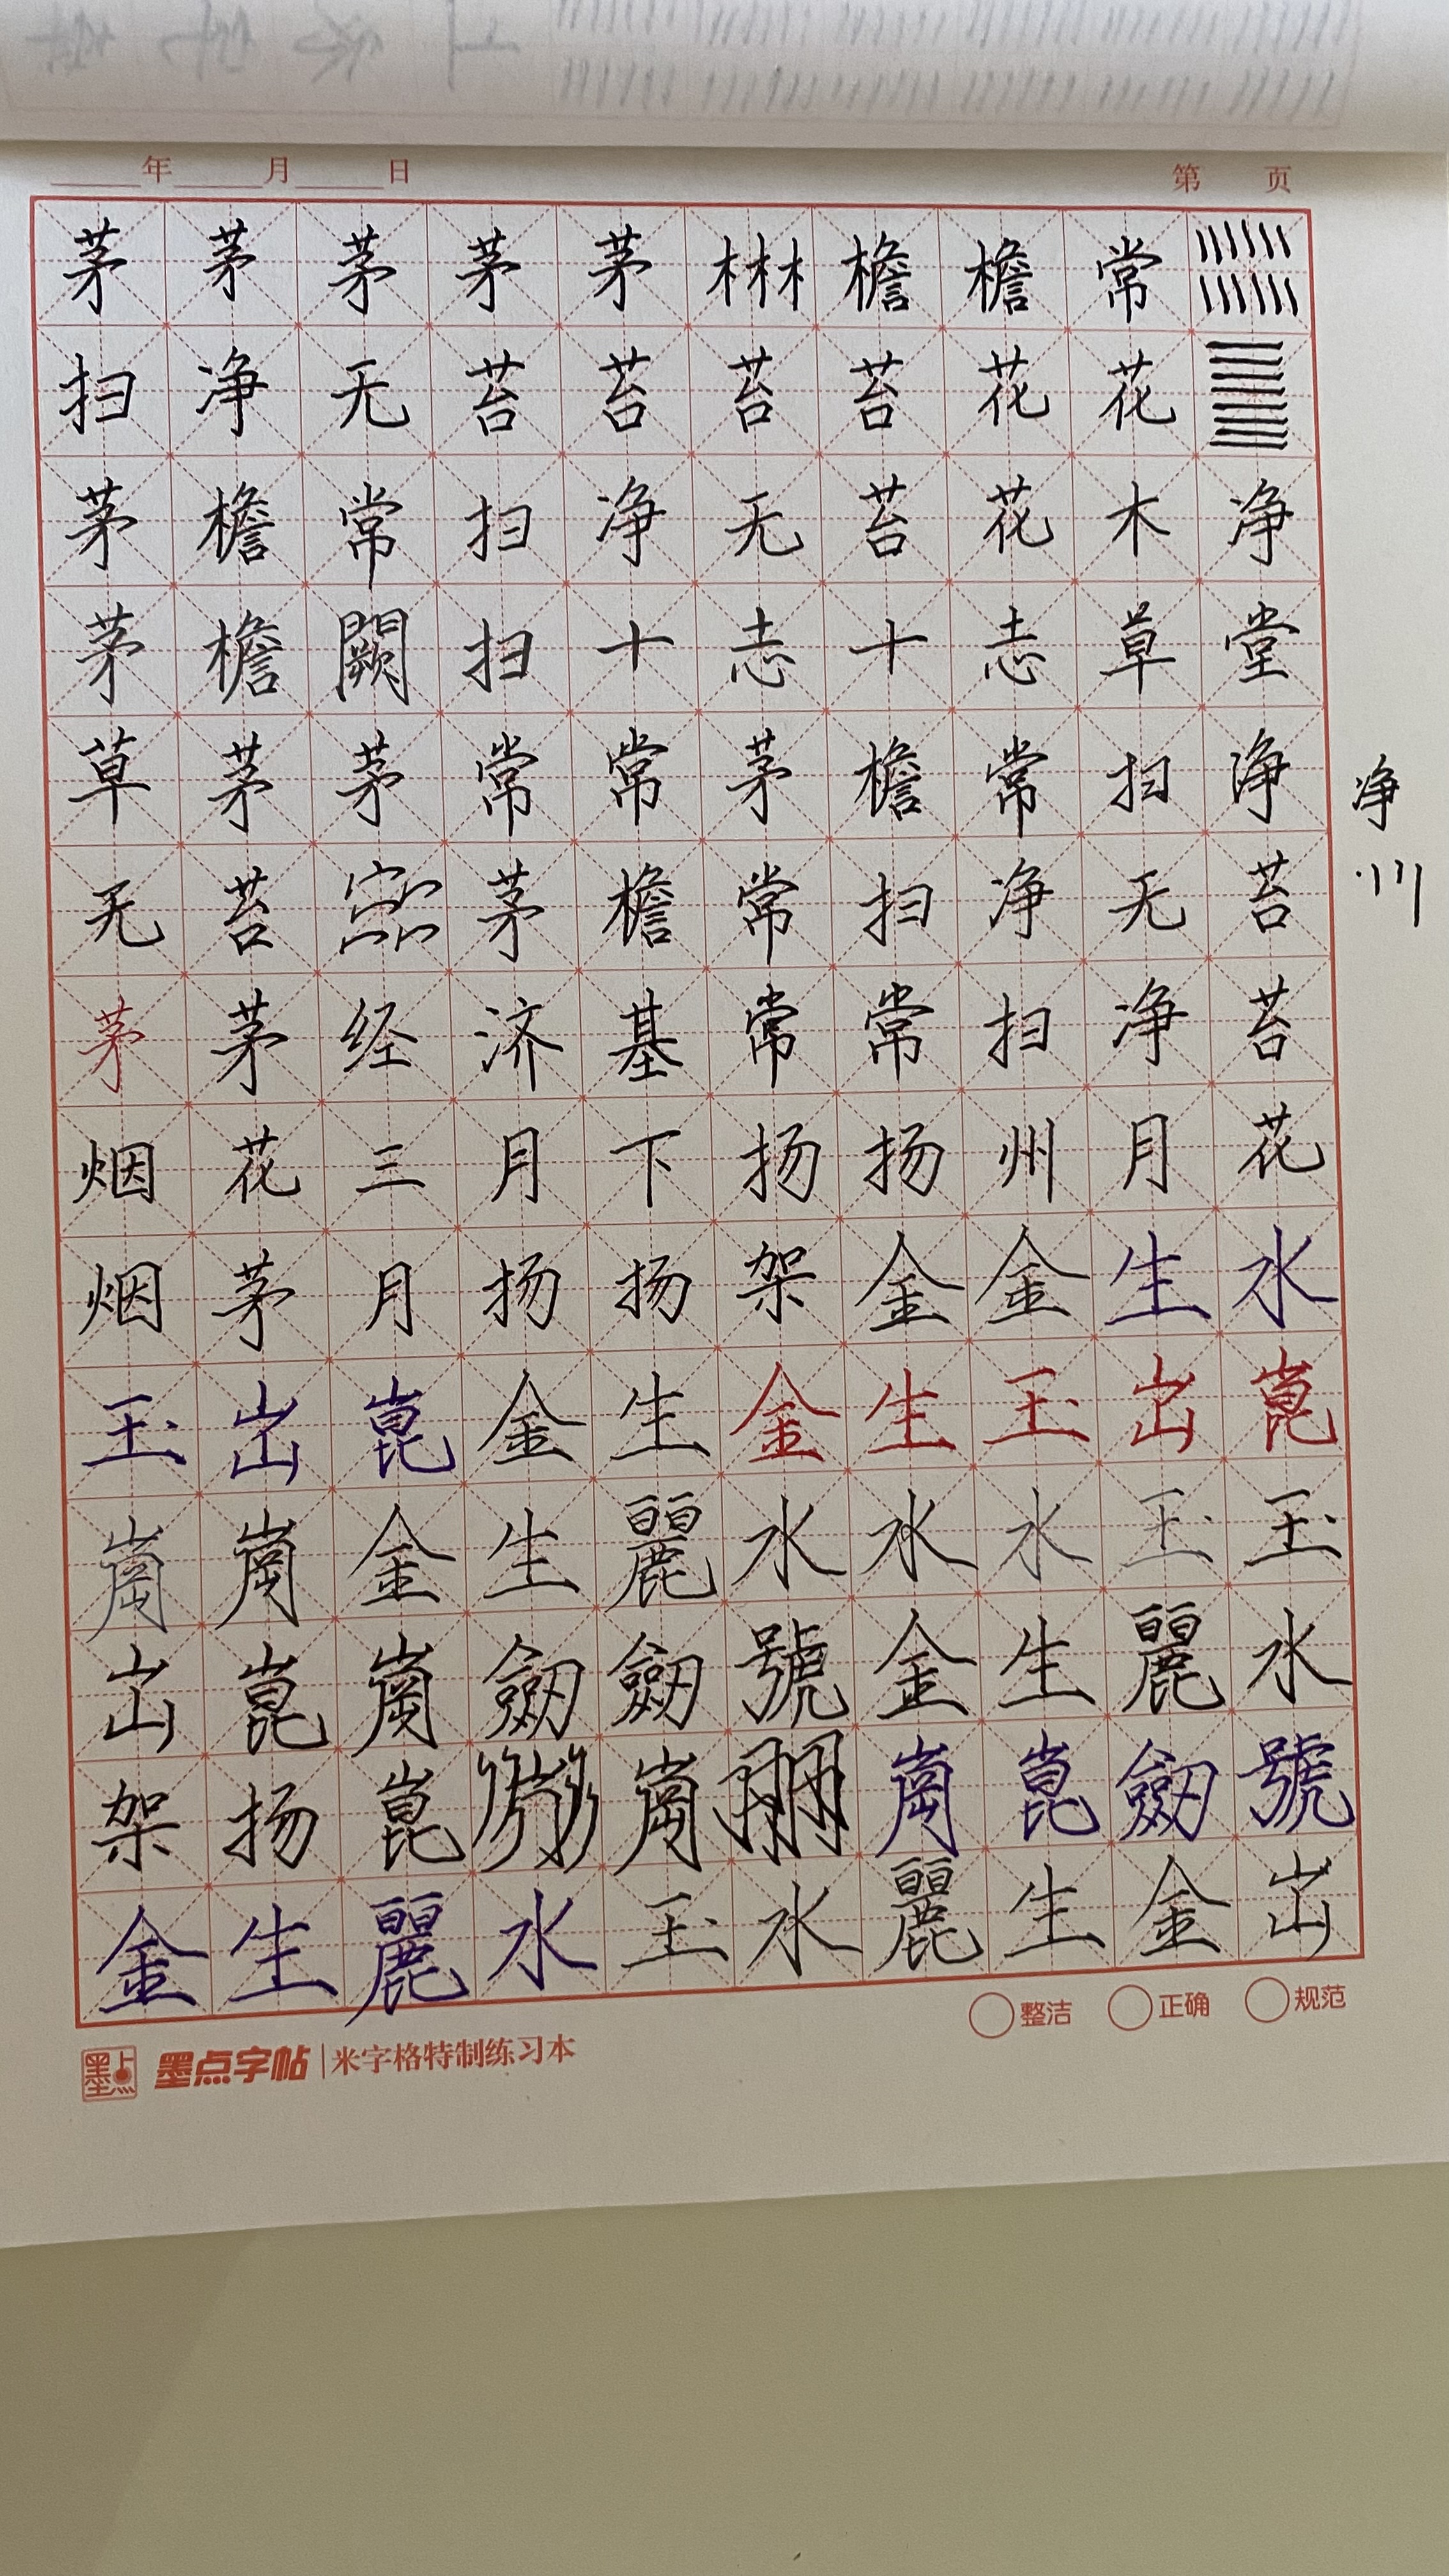 年 月 日 第 页
茅 茅 茅 茅 茅 檐 檐 常
扫 净 无 苔 苔 苔 苔 花 花
茅 檐 常 扫 净 无 苔 花 木 净
茅 檐 闕 扫 十 志 十 志 草 堂
草 茅 茅 常 常 茅 檐 常 扫 净
净
无 苔 茅 檐 常 扫 净 无 苔
茅 茅 经 济 基 常 常 扫 净 苔
烟 花 三 月 下 扬 扬 州 月 花
烟 茅 月 扬 扬 架 金 金 生 水
玉 出 崑 金 生 金 生 玉 出 崑
崗 崗 金 生 麗 水 水 水 玉 玉
出 崑 崗 劒 劒 號 金 生 麗 水
架 扬 崑 崗 崗 崑 劒 號
金 生 麗 水 玉 水 麗 生 金 出
整洁 正确 规范
墨点 墨点字帖 | 米字格特制练习本